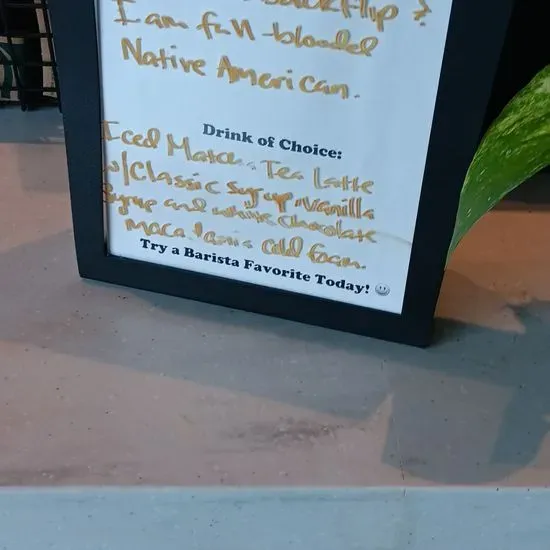 backflip?
I am full-blooded
Native American.
Drink of Choice:
Iced Matcha Tea Latte
w/Classic syrup, Vanilla
Syrup and white chocolate
macadamia cold foam.
Try a Barista Favorite Today!